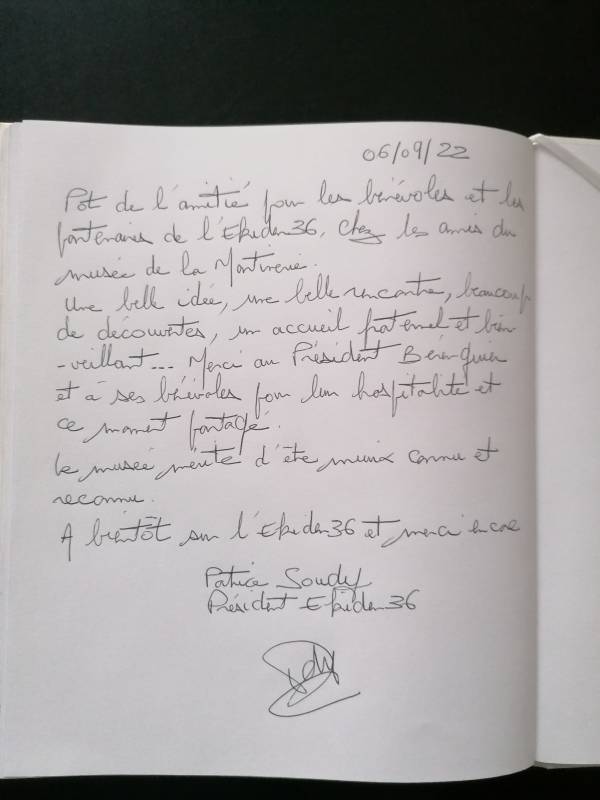 06/09/22
Pot de l'amitié pour les bénévoles et les
partenaires de l'Ekiden36, chez les amis du
musée de la Martinerie.
Une belle idée, une belle rencontre, beaucoup
de découvertes, un accueil fraternel et bien
-veillant... Merci au Président Bérenguier
et à ses bénévoles pour leur hospitalité et
ce moment partagé.
Le musée mérite d'être mieux connu et
reconnu.
A bientôt sur l'Ekiden36 et merci encore
Patrice Soudy
Président Ekiden36